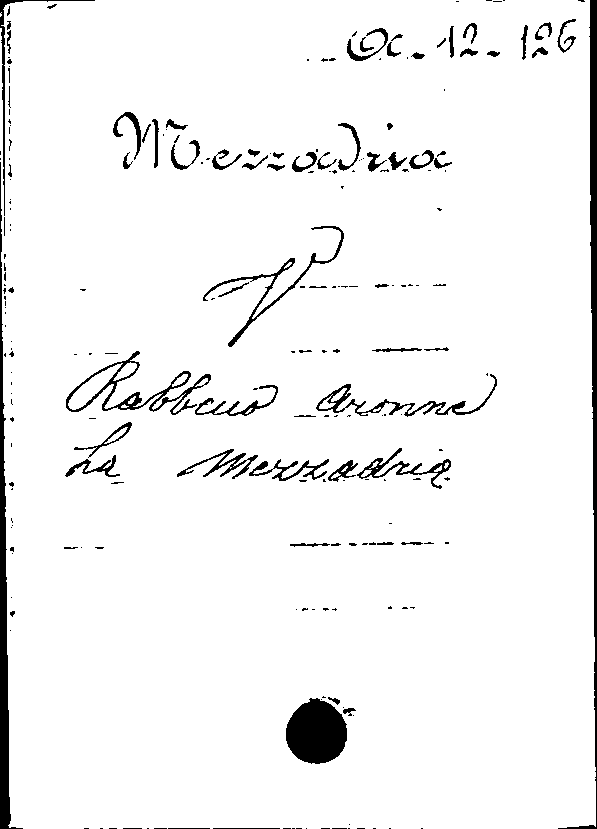 Oc - 12 - 126
Mezzadria
V
Rabbeno Aronne
La Mezzadria